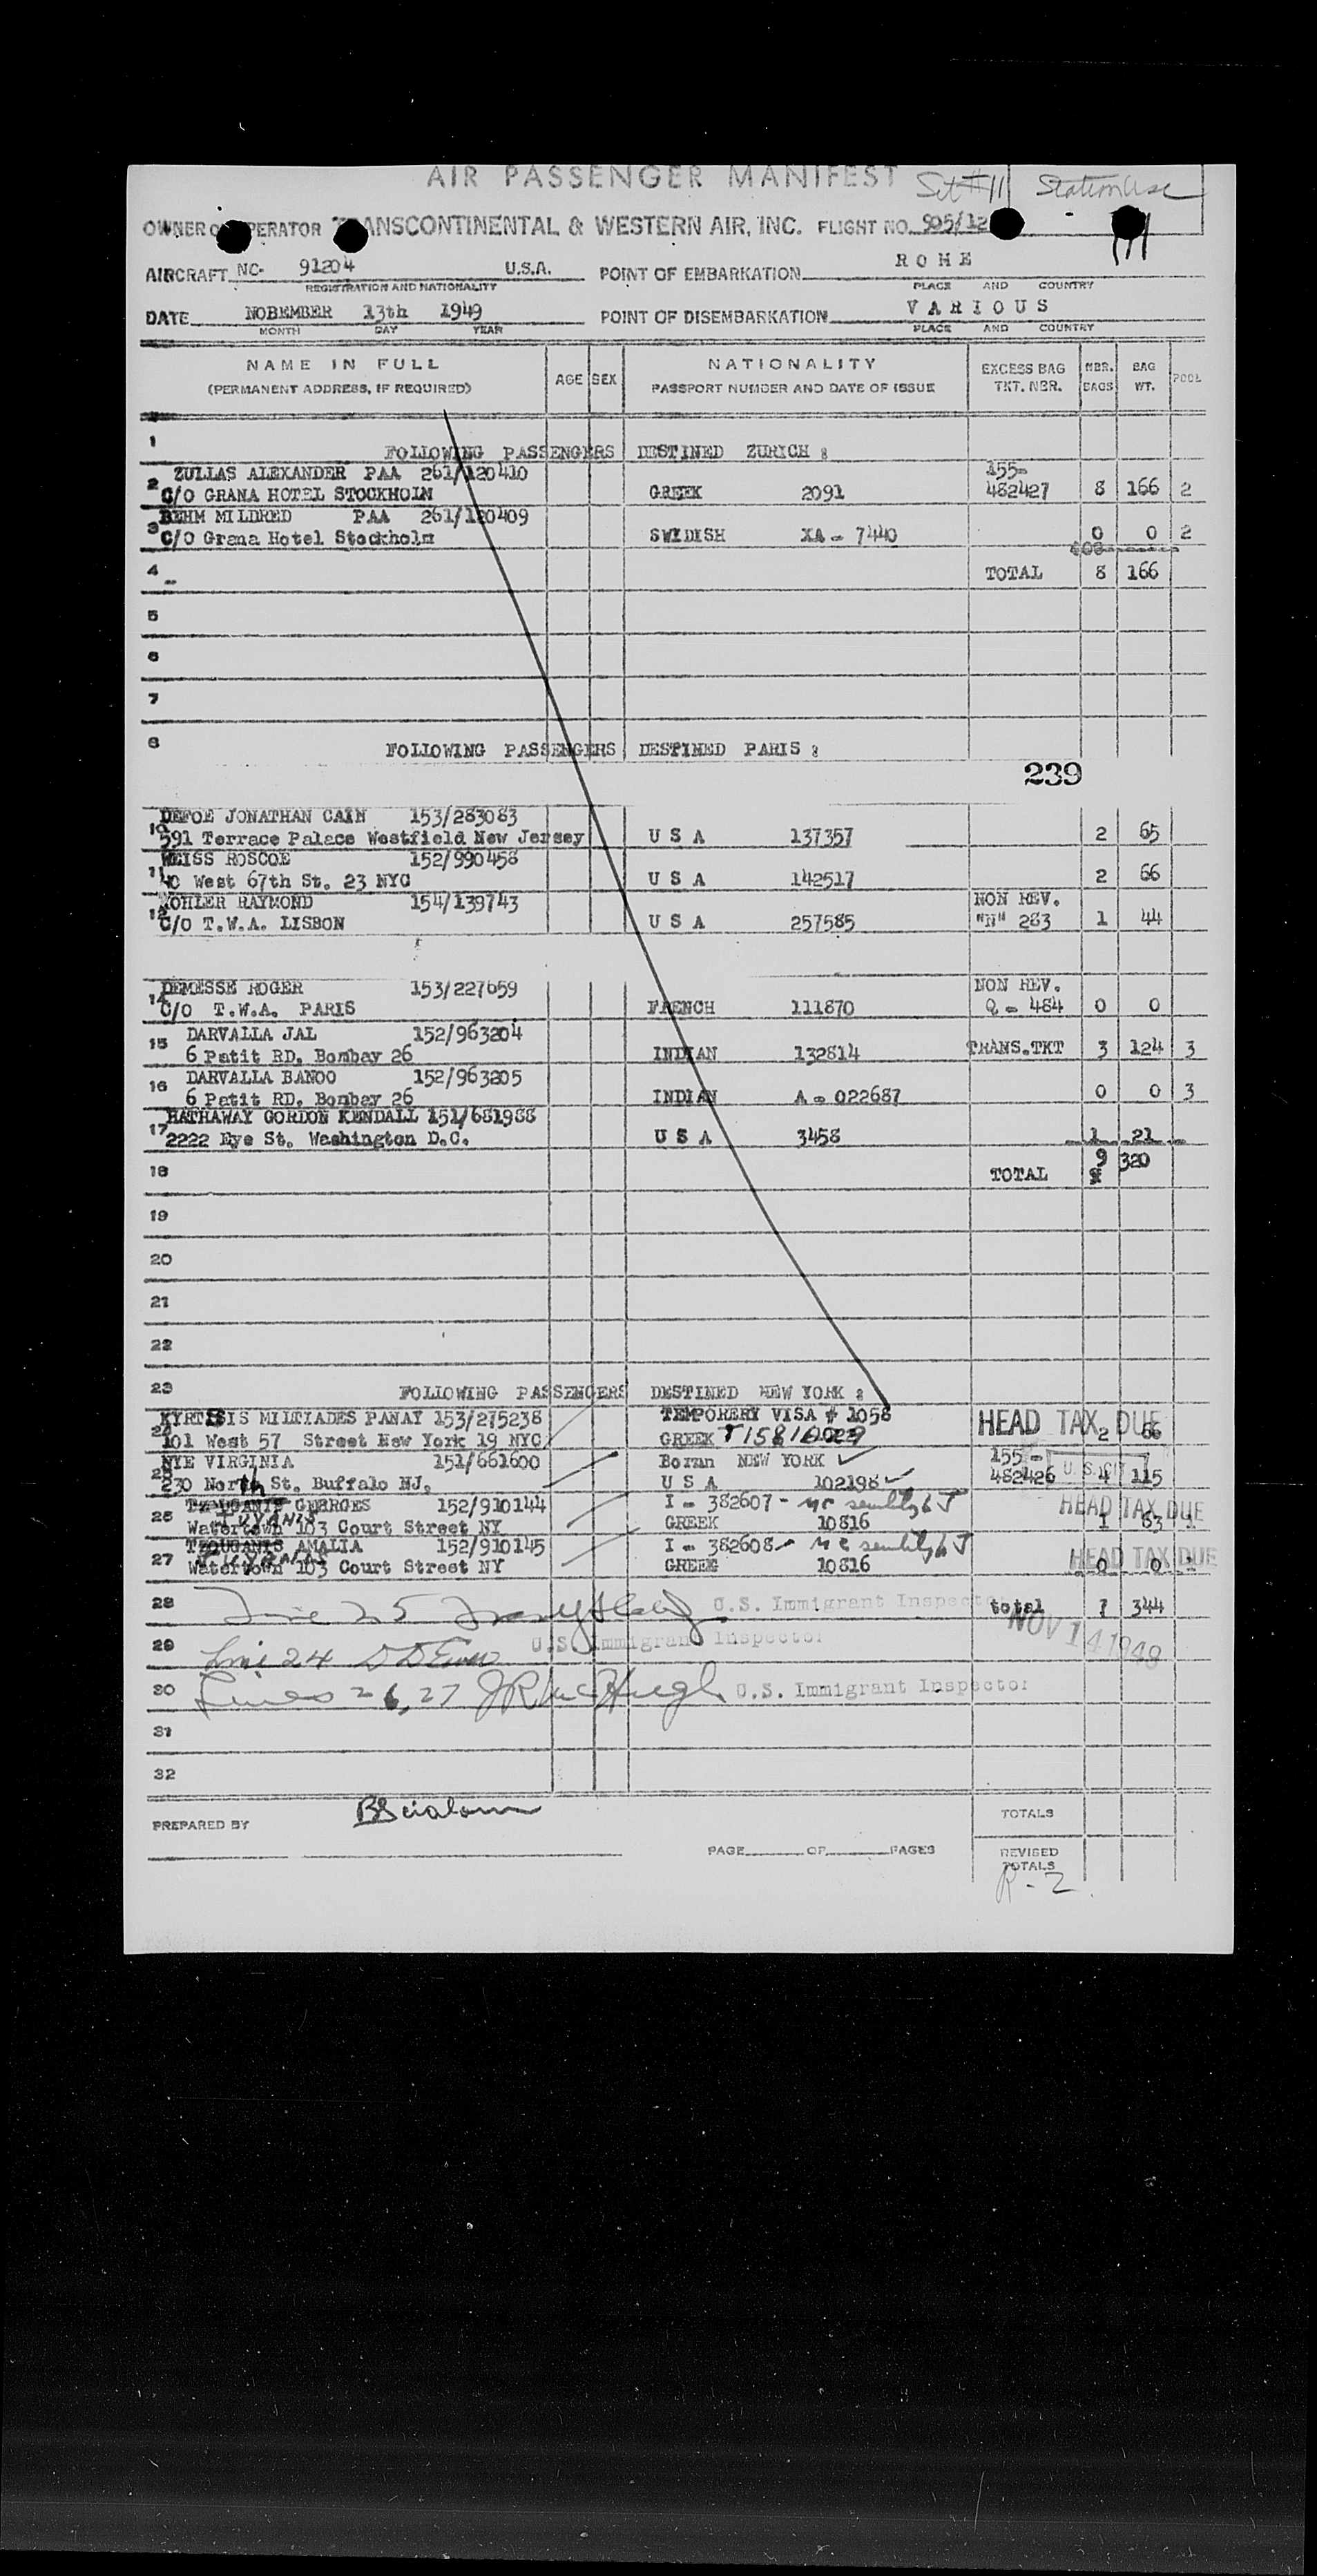 AIR PASSENGER MANIFEST Set #11 Station Use
OWNER O PERATOR TRANSCONTINENTAL & WESTERN AIR, INC. FLIGHT NO. 905/12
AIRCRAFT NC- 91204 U.S.A. POINT OF EMBARKATION R O M E
REGISTRATION AND NATIONALITY PLACE AND COUNTRY
DATE NOBEMBER 13th 1949 POINT OF DISEMBARKATION V A R I O U S
MONTH DAY YEAR PLACE AND COUNTRY
NAME IN FULL AGE SEX NATIONALITY EXCESS BAG NBR. BAG POOL
(PERMANENT ADDRESS, IF REQUIRED) PASSPORT NUMBER AND DATE OF ISSUE TKT. NBR. BAGS WT.
1 FOLLOWING PASSENGERS DESTINED ZURICH :
ZULLAS ALEXANDER PAA 261/120410 155-
2 C/O GRANA HOTEL STOCKHOLM GREEK 2091 482427 8 166 2
BEHM MILDRED PAA 261/120409
3 C/O Grana Hotel Stockholm SWEDISH XA - 7440 0 0 2
4 TOTAL 8 166
5
6
7
8 FOLLOWING PASSENGERS DESTINED PARIS :
239
DEFOE JONATHAN CAIN 153/283083
10 591 Terrace Palace Westfield New Jersey U S A 137357 2 65
WEISS ROSCOE 152/990458
11 40 West 67th St. 23 NYC U S A 142517 2 66
KOHLER RAYMOND 154/139743 NON REV.
12 C/O T.W.A. LISBON U S A 257585 "N" 283 1 44
DEMESSE ROGER 153/227659 NON REV.
14 C/O T.W.A. PARIS FRENCH 111870 Q - 484 0 0
DARVALLA JAL 152/963204
15 6 Patit RD. Bombay 26 INDIAN 132814 TRANS.TKT 3 124 3
DARVALLA BANOO 152/963205
16 6 Patit RD. Bombay 26 INDIAN A - 022687 0 0 3
HATHAWAY GORDON KENDALL 151/681988
17 2222 Eye St. Washington D.C. U S A 3458 1 21
18 TOTAL 9 320
19
20
21
22
23 FOLLOWING PASSENGERS DESTINED NEW YORK :
KYRTSIS MILTIADES PANAY 153/275238 TEMPORERY VISA # 1058 HEAD TAX DUE
24 101 West 57 Street New York 19 NYC GREEK 2 66
NYE VIRGINIA 151/661600 Boran NEW YORK 155 -
25 230 North St. Buffalo NJ. U S A 102198 482426 4 115
TZOUGANIS GEORGES 152/910144 I - 382607 - HEAD TAX DUE
26 Watertown 103 Court Street NY GREEK 10816 1 63 1
TZOUGANIS AMALIA 152/910145 I - 382608 - HEAD TAX DUE
27 Watertown 103 Court Street NY GREEK 10816 0 0 1
28 Line 25 U.S. Immigrant Inspector total 7 344
NOV 14 1949
29 Line 24 U.S. Immigrant Inspector
30 Lines 26, 27 J R McHugh U.S. Immigrant Inspector
31
32
PREPARED BY TOTALS
PAGE OF PAGES REVISED
TOTALS
R - 2